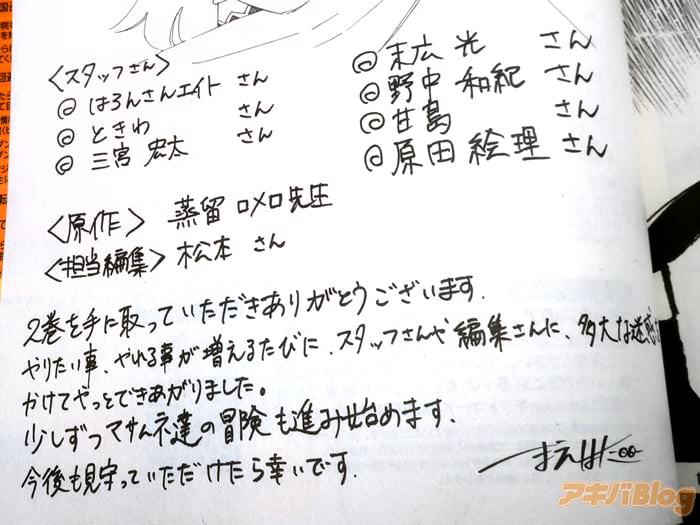 <スタッフさん>
◎ はろんさんエイト さん
◎ ときわ さん
◎ 三宮 宏太 さん
◎ 末広 光 さん
◎ 野中 和紀 さん
◎ 甘島 さん
◎ 原田 絵理 さん
<原作> 蒸留 ロメロ先生
<担当編集> 松本 さん
2巻を手に取っていただきありがとうございます.
やりたい事、やれる事が増えるたびに、スタッフさんや編集さんに、多大な迷惑を
かけてやっとできあがりました。
少しずつマサムネ達の冒険も進み始めます.
今後も見守っていただけたら幸いです.
まえはた
アキバBlog